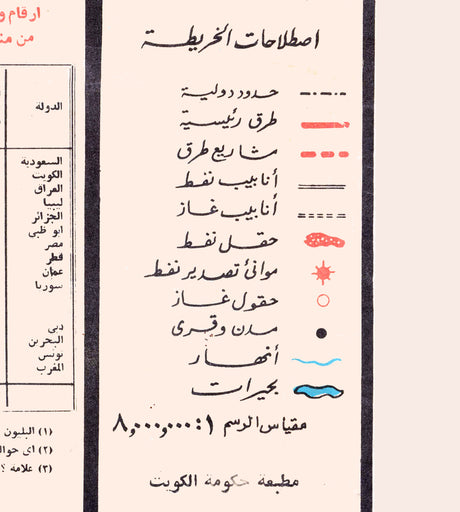 اصطلاحات الخريطة
حدود دولية
طرق رئيسية
مشاريع طرق
أنابيب نفط
أنابيب غاز
حقل نفط
موانئ تصدير نفط
حقول غاز
مدن وقرى
أنهار
بحيرات
مقياس الرسم ١ : ٨,٠٠٠,٠٠٠
مطبعة حكومة الكويت
ارقام و
من من
الدولة
السعودية
الكويت
العراق
ليبيا
الجزائر
ابو ظبي
مصر
قطر
عمان
سوريا
دبي
البحرين
تونس
المغرب
(١) البليون
(٢) اي حوال
(٣) علامة ؟